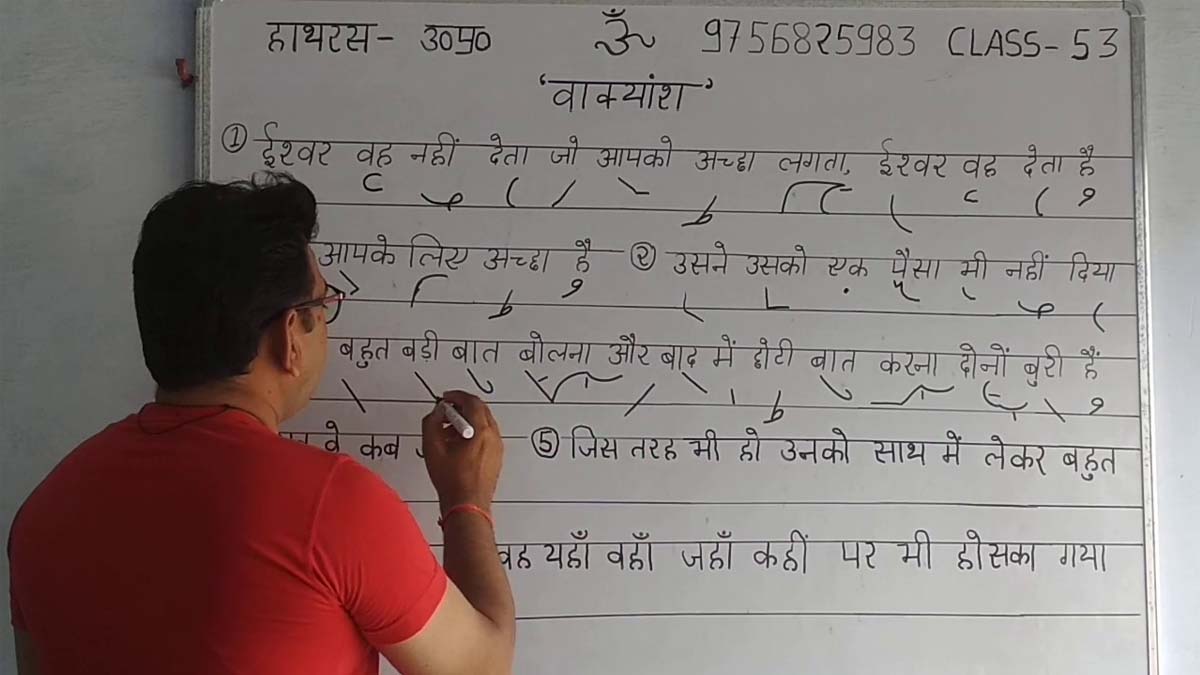 हाथरस- उ०प्र० ॐ 9756825983 CLASS-53
'वाक्यांश'
① ईश्वर वह नहीं देता जो आपको अच्छा लगता, ईश्वर वह देता है
आपके लिए अच्छा है ② उसने उसको एक पैसा भी नहीं दिया
बहुत बड़ी बात बोलना और बाद में छोटी बात करना दोनों बुरी हैं
वे कब ⑤ जिस तरह भी हो उनको साथ में लेकर बहुत
वह यहाँ वहाँ जहाँ कहीं पर भी हो सका गया